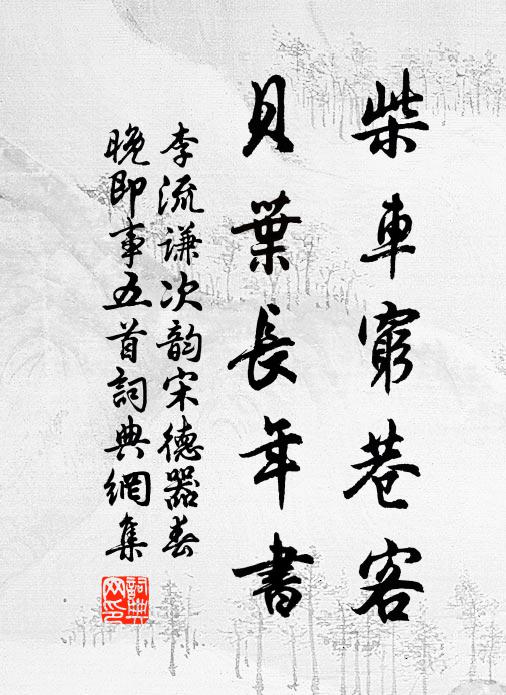 柴車窮巷客
貝葉長年書
李流謙次韵宋德器春
晚即事五首詞典網集